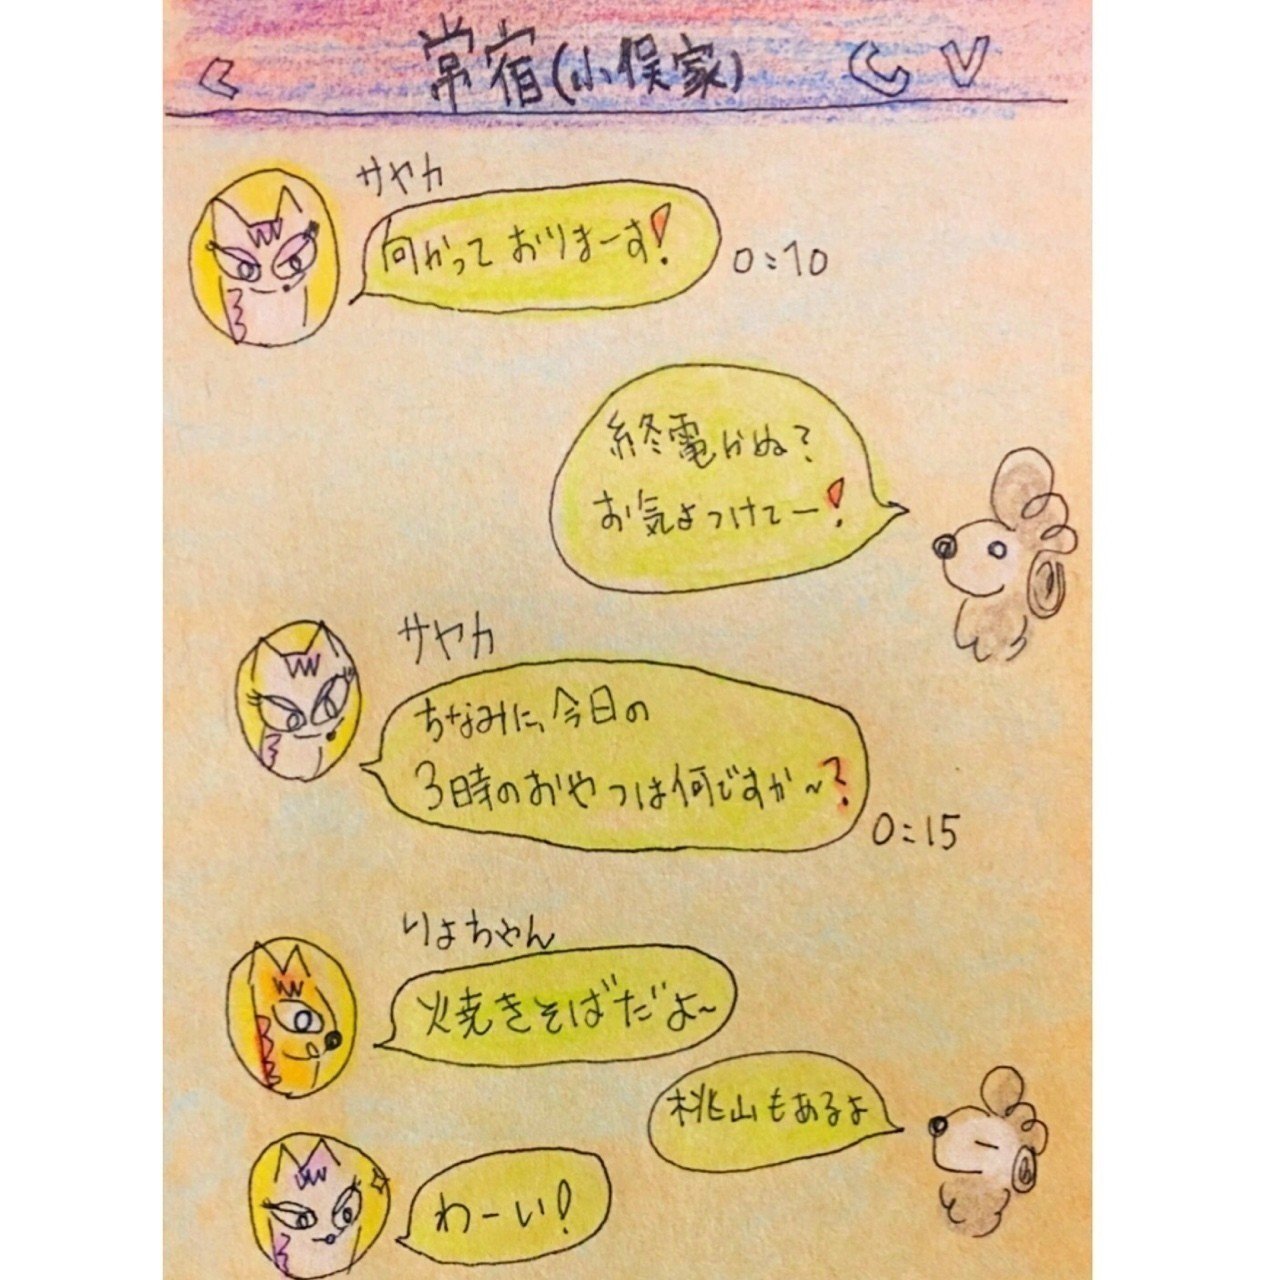 常宿(小俣家)
サヤカ
向かっておりまーす!
0:10
終電かぬ?
お気よつけてー!
サヤカ
ちなみに、今日の
3時のおやつは何ですか~?
0:15
りょちゃん
焼きそばだよ~
桃山もあるよ
わーい!